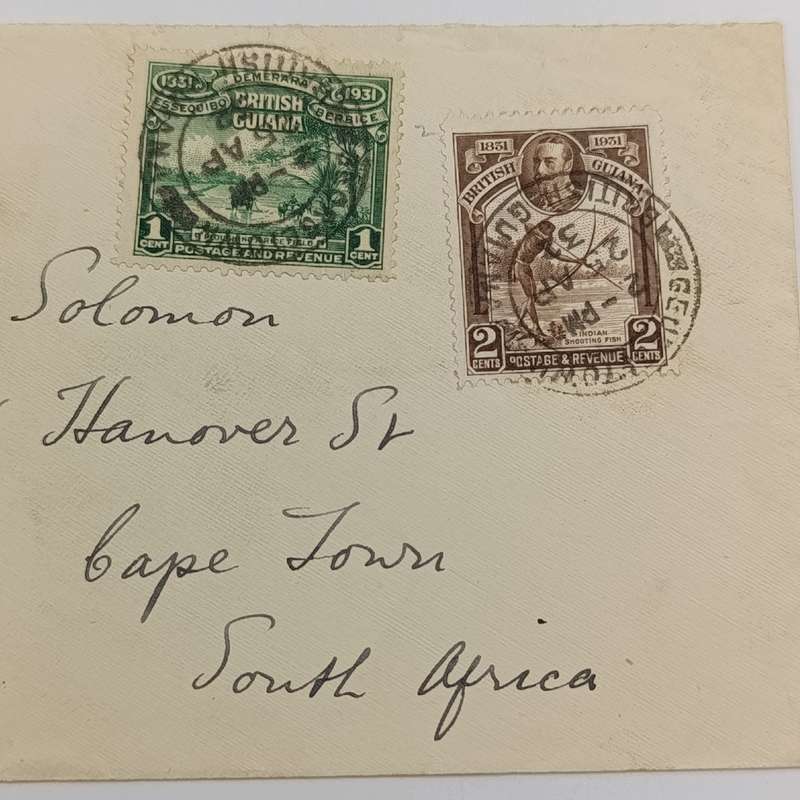 1831 DEMERARA 1931
ESSEQUIBO BERBICE
BRITISH
GUIANA
1 CENT 1 CENT
POSTAGE AND REVENUE
2
1831 1931
BRITISH GUIANA
INDIAN
SHOOTING FISH
2 CENTS 2 CENTS
POSTAGE & REVENUE
2 - PM
AP
32
BRITISH GUIANA
Solomon
Hanover St
Cape Town
South Africa